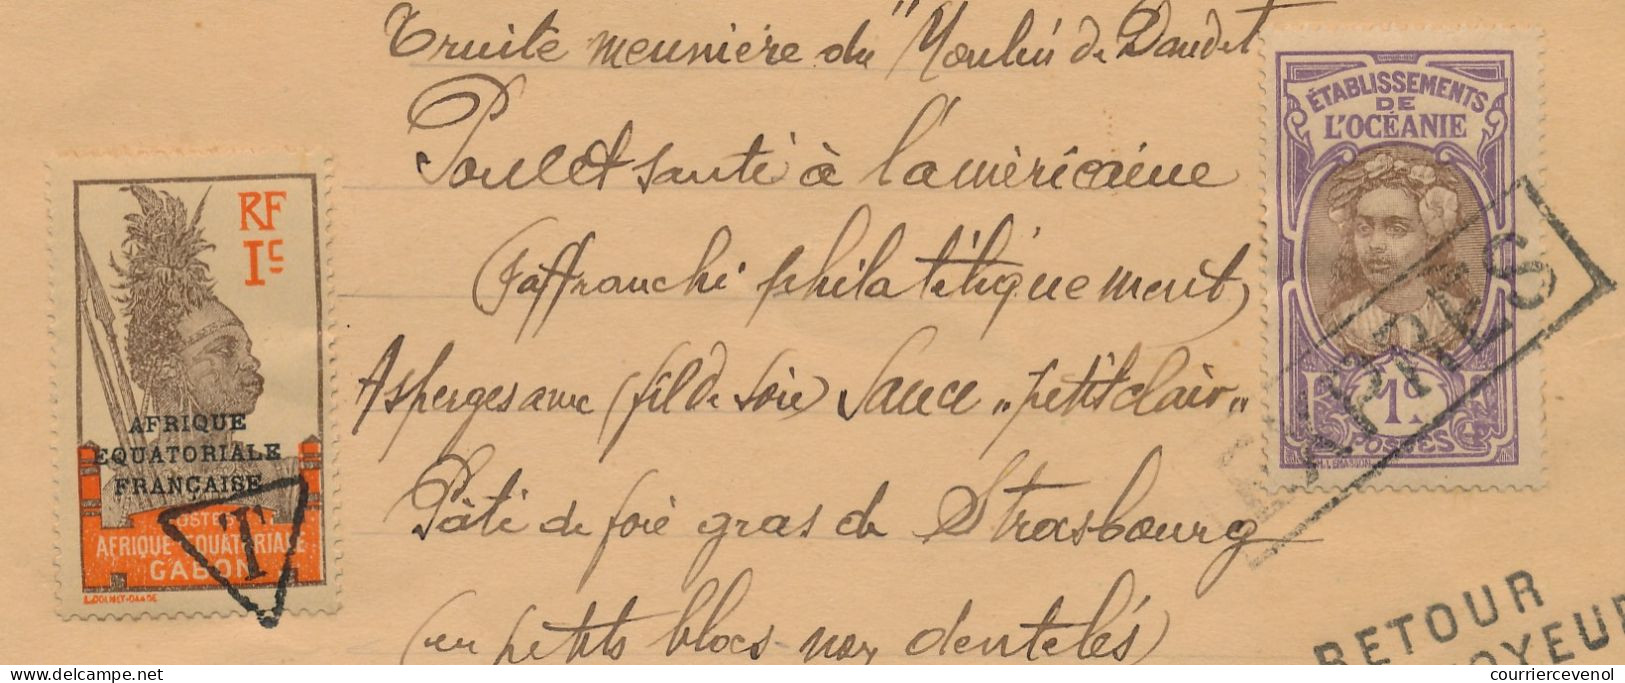 Truite meunière du "Moulin de Daudet
Poulet santé à l'américaine
(affranchi philatéliquement)
Asperges avec (fil de soie) Sauce „petit clair"
Pâté de foie gras de Strasbourg
(en petits blocs non dentelés)
RF
1c
AFRIQUE
EQUATORIALE
FRANÇAISE
POSTES
AFRIQUE-EQUATORIALE
GABON
T
ÉTABLISSEMENTS
DE
L'OCÉANIE
1c
POSTES
RETOUR
OYEUR
courriercevenol